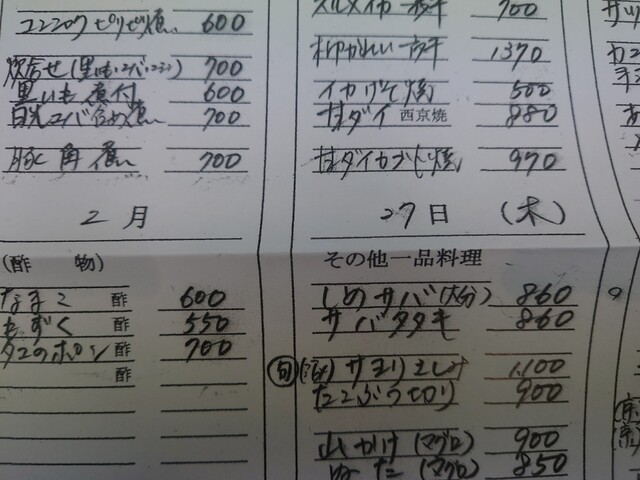 コンニャクピリピリ焼 600
炊合せ(里いも、 700
里いも煮付 600
日光ユバ含め煮 700
豚角煮 700
スルメイカ一夜干 700
柳かれい一夜干 1370
イカげそ焼 500
甘ダイ 西京焼 880
甘ダイカブト焼 970
2月 27日 (木)
(酢 物)
なまこ 酢 600
もずく 酢 550
タコのポン 酢 700
酢
その他一品料理
しめサバ(大分) 860
サバタタキ 860
旬 サヨリ 1,100
たこぶつ切り 900
山かけ(マグロ) 900
ぬた(マグロ) 850